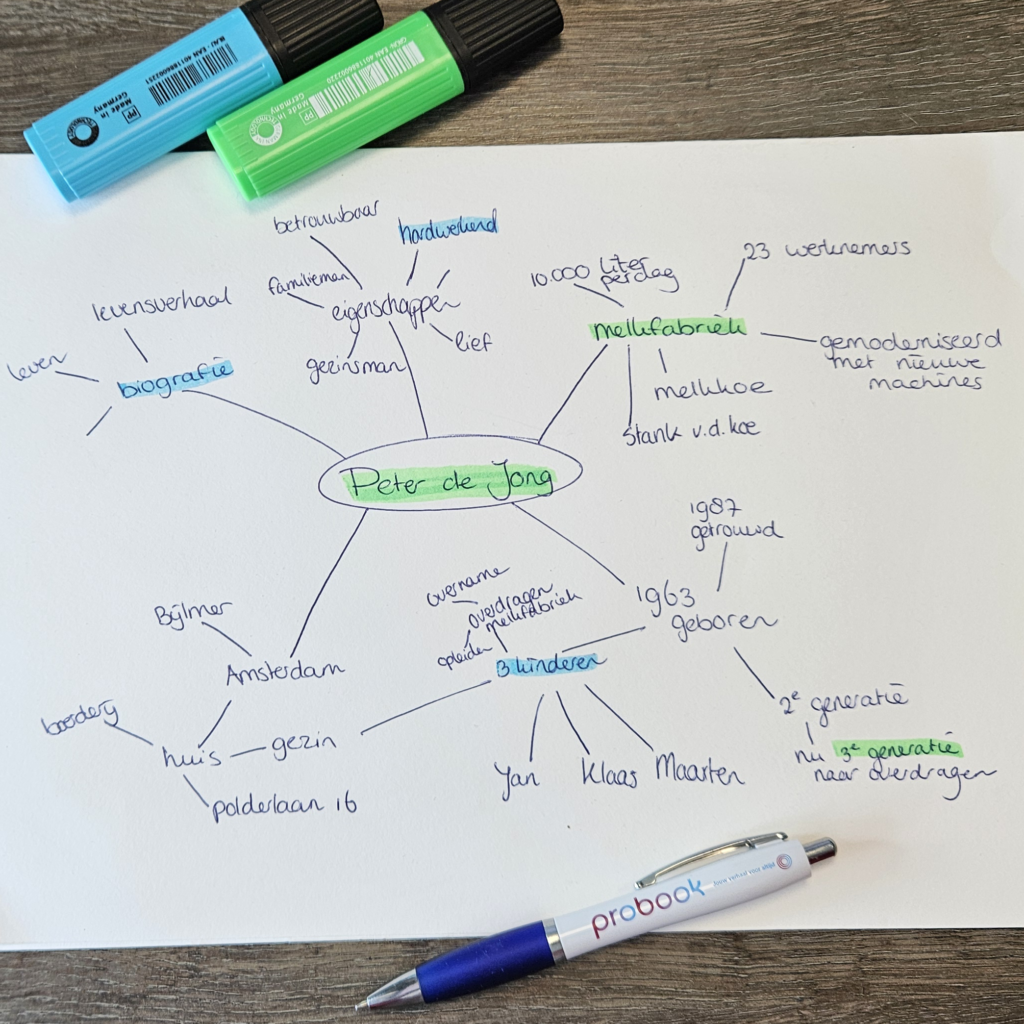 MJN/ - EAN 4011886002251
Made in
Germany
PP
GNJN/ - EAN 4011886002220
Made in
Germany
PP
betrouwbaar
hardwerkend
familieman
eigenschappen
geeinsman
lief
levensverhaal
leven
biografie
10.000 liter
per dag
23 werknemers
melkfabriek
gemoderniseerd
met nieuwe
machines
melkkoe
Stank v.d. koe
Peter de Jong
1987
getrouwd
1963
geboren
overname
overdragen
melkfabriek
opleiden
3 kinderen
Jan
Klaas
Maarten
2e generatie
nu 3e generatie
naar overdragen
Bijlmer
Amsterdam
boerderij
huis
gezin
polderlaan 16
probook
Jouw verhaal voor altijd